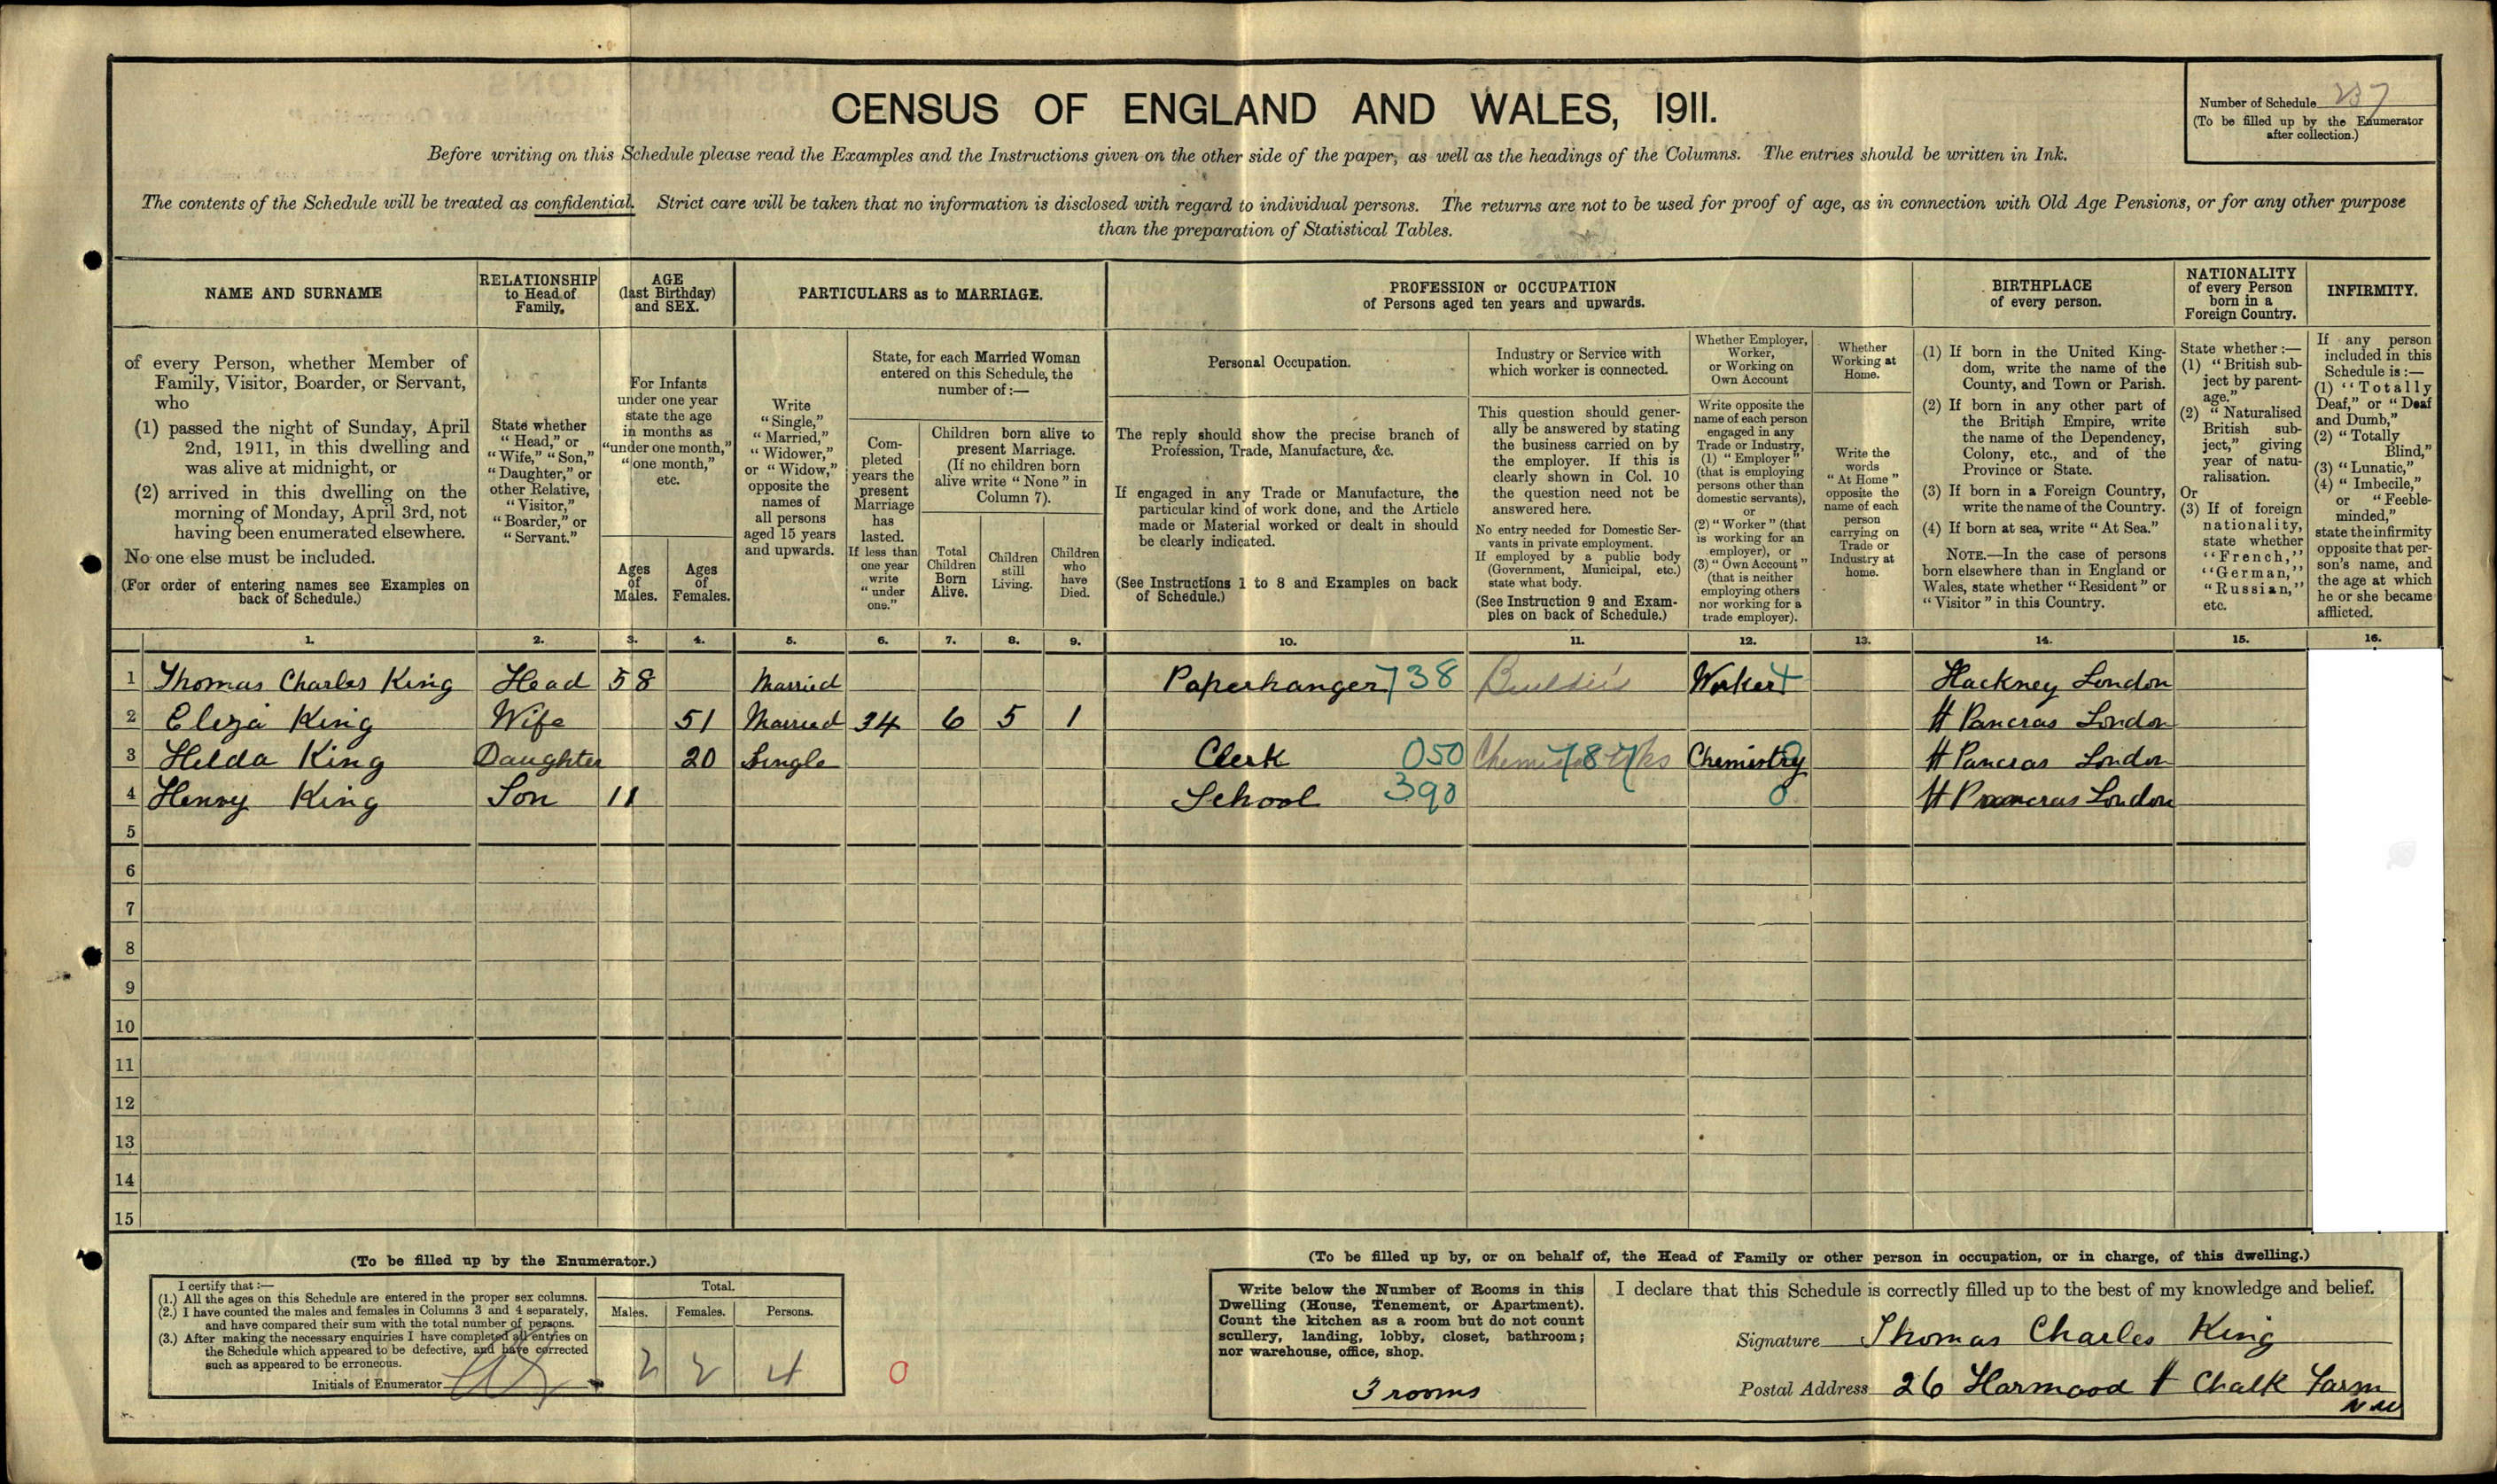 CENSUS OF ENGLAND AND WALES, 1911.
Number of Schedule 237
(To be filled up by the Enumerator
after collection.)
Before writing on this Schedule please read the Examples and the Instructions given on the other side of the paper, as well as the headings of the Columns. The entries should be written in Ink.
The contents of the Schedule will be treated as confidential. Strict care will be taken that no information is disclosed with regard to individual persons. The returns are not to be used for proof of age, as in connection with Old Age Pensions, or for any other purpose
than the preparation of Statistical Tables.
NAME AND SURNAME
of every Person, whether Member of
Family, Visitor, Boarder, or Servant,
who
(1) passed the night of Sunday, April
2nd, 1911, in this dwelling and
was alive at midnight, or
(2) arrived in this dwelling on the
morning of Monday, April 3rd, not
having been enumerated elsewhere.
No one else must be included.
(For order of entering names see Examples on
back of Schedule.)
RELATIONSHIP
to Head of
Family.
State whether
"Head," or
"Wife," "Son,"
"Daughter," or
other Relative,
"Visitor,"
"Boarder," or
"Servant."
AGE
(last Birthday)
and SEX.
For Infants
under one year
state the age
in months as
"under one month,"
"one month,"
etc.
Ages
of
Males.
Ages
of
Females.
PARTICULARS as to MARRIAGE.
Write
"Single,"
"Married,"
"Widower,"
or "Widow,"
opposite the
names of
all persons
aged 15 years
and upwards.
State, for each Married Woman
entered on this Schedule, the
number of:—
Com-
pleted
years the
present
Marriage
has
lasted.
If less than
one year
write
"under
one."
Children born alive to
present Marriage.
(If no children born
alive write "None" in
Column 7).
Total
Children
Born
Alive.
Children
still
Living.
Children
who
have
Died.
PROFESSION or OCCUPATION
of Persons aged ten years and upwards.
Personal Occupation.
The reply should show the precise branch of
Profession, Trade, Manufacture, &c.
If engaged in any Trade or Manufacture, the
particular kind of work done, and the Article
made or Material worked or dealt in should
be clearly indicated.
(See Instructions 1 to 8 and Examples on back
of Schedule.)
Industry or Service with
which worker is connected.
This question should gener-
ally be answered by stating
the business carried on by
the employer. If this is
clearly shown in Col. 10
the question need not be
answered here.
No entry needed for Domestic Ser-
vants in private employment.
If employed by a public body
(Government, Municipal, etc.)
state what body.
(See Instruction 9 and Exam-
ples on back of Schedule.)
Whether Employer,
Worker,
or Working on
Own Account
Write opposite the
name of each person
engaged in any
Trade or Industry,
(1) "Employer"
(that is employing
persons other than
domestic servants),
or
(2) "Worker" (that
is working for an
employer), or
(3) "Own Account"
(that is neither
employing others
nor working for a
trade employer).
Whether
Working at
Home.
Write the
words
"At Home"
opposite the
name of each
person
carrying on
Trade or
Industry at
home.
BIRTHPLACE
of every person.
(1) If born in the United King-
dom, write the name of the
County, and Town or Parish.
(2) If born in any other part of
the British Empire, write
the name of the Dependency,
Colony, etc., and of the
Province or State.
(3) If born in a Foreign Country,
write the name of the Country.
(4) If born at sea, write "At Sea."
NOTE.—In the case of persons
born elsewhere than in England or
Wales, state whether "Resident" or
"Visitor" in this Country.
NATIONALITY
of every Person
born in a
Foreign Country.
State whether:—
(1) "British sub-
ject by parent-
age."
(2) "Naturalised
British sub-
ject," giving
year of natu-
ralisation.
Or
(3) If of foreign
nationality,
state whether
"French,"
"German,"
"Russian,"
etc.
INFIRMITY.
If any person
included in this
Schedule is:—
(1) "Totally
Deaf," or "Deaf
and Dumb,"
(2) "Totally
Blind,"
(3) "Lunatic,"
(4) "Imbecile,"
or "Feeble-
minded,"
state the infirmity
opposite that per-
son's name, and
the age at which
he or she became
afflicted.
1. 2. 3. 4. 5. 6. 7. 8. 9. 10. 11. 12. 13. 14. 15. 16.
1 Thomas Charles King Head 58 Married Paperhanger 738 Builder's Worker Hackney London
2 Eliza King Wife 51 Married 34 6 5 1 St Pancras London
3 Hilda King Daughter 20 Single Clerk 050 787 Chemistry St Pancras London
4 Henry King Son 11 School 390 0 St Pancras London
5
6
7
8
9
10
11
12
13
14
15
(To be filled up by the Enumerator.)
I certify that:—
(1.) All the ages on this Schedule are entered in the proper sex columns.
(2.) I have counted the males and females in Columns 3 and 4 separately,
and have compared their sum with the total number of persons.
(3.) After making the necessary enquiries I have completed all entries on
the Schedule which appeared to be defective, and have corrected
such as appeared to be erroneous.
Initials of Enumerator
Total.
Males. Females. Persons.
2 2 4
0
(To be filled up by, or on behalf of, the Head of Family or other person in occupation, or in charge, of this dwelling.)
Write below the Number of Rooms in this
Dwelling (House, Tenement, or Apartment).
Count the kitchen as a room but do not count
scullery, landing, lobby, closet, bathroom;
nor warehouse, office, shop.
3 rooms
I declare that this Schedule is correctly filled up to the best of my knowledge and belief.
Signature Thomas Charles King
Postal Address 26 Harmood St Chalk Farm
NW